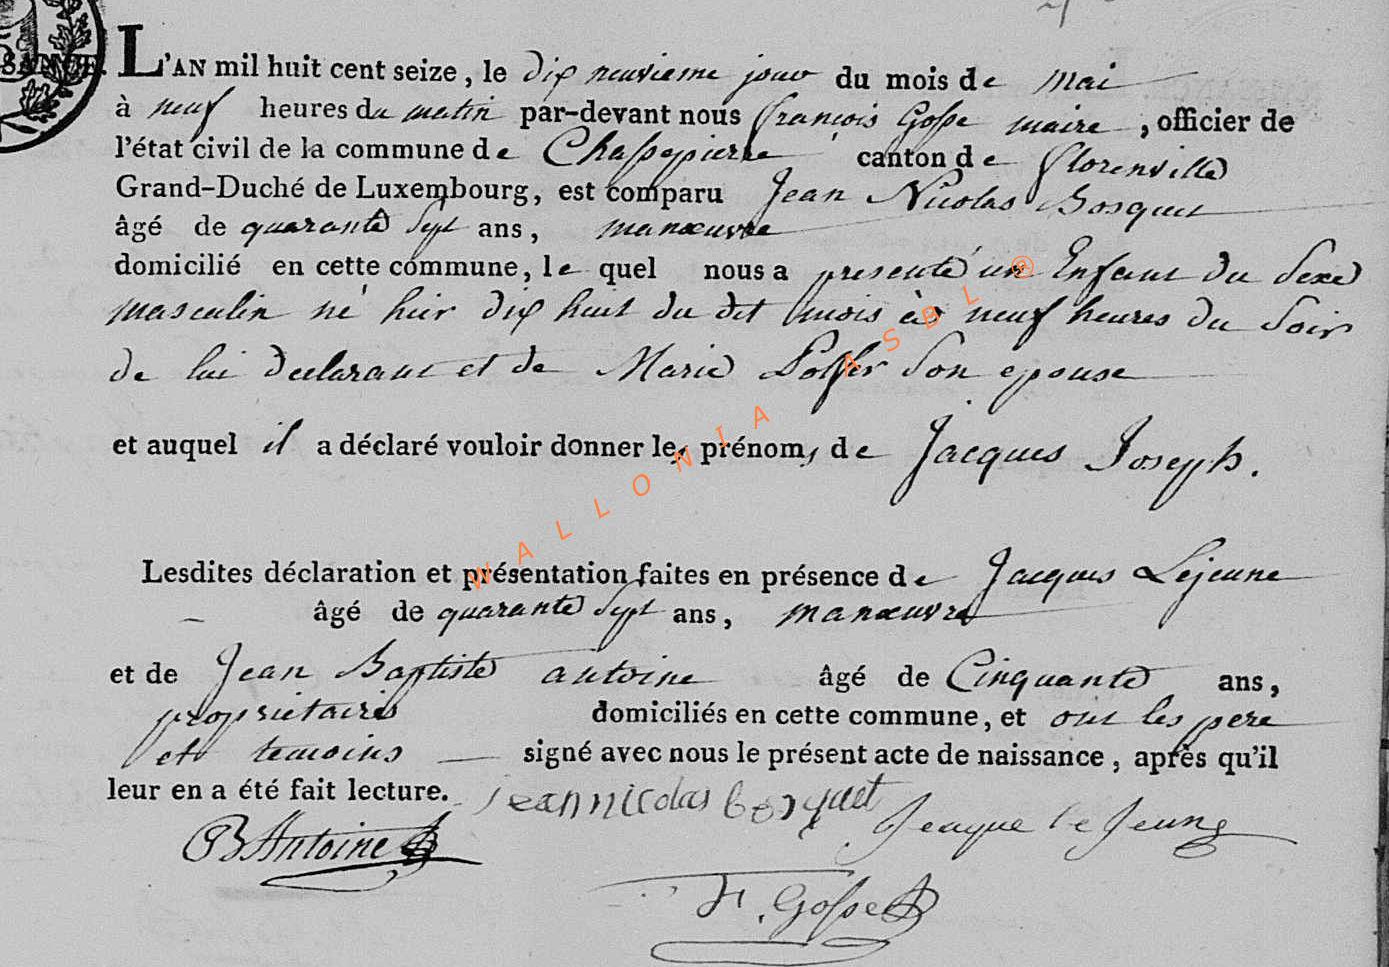 L'AN mil huit cent seize, le dix neuvieme jour du mois de mai
à neuf heures du matin par-devant nous françois Gosse maire, officier de
l'état civil de la commune de Chassepierre canton de florenville
Grand-Duché de Luxembourg, est comparu Jean Nicolas Bosquet
âgé de quarante Sept ans, manœuvre
domicilié en cette commune, le quel nous a presenté un Enfant du Sexe
masculin né hier dix huit du dit mois à neuf heures du Soir
de lui declarant et de Marie Son epouse
et auquel il a déclaré vouloir donner les prénoms de Jacques Joseph.
Lesdites déclaration et présentation faites en présence de Jacques Lejeune
âgé de quarante Sept ans, manœuvre
et de Jean Baptiste antoine âgé de Cinquante ans,
proprietaires domiciliés en cette commune, et ont les pere
et temoins signé avec nous le présent acte de naissance, après qu'il
leur en a été fait lecture. jean nicolas bosquet
JB Antoine Jeaque le Jeune
F. Gosse
WALLONIA ASBL ®